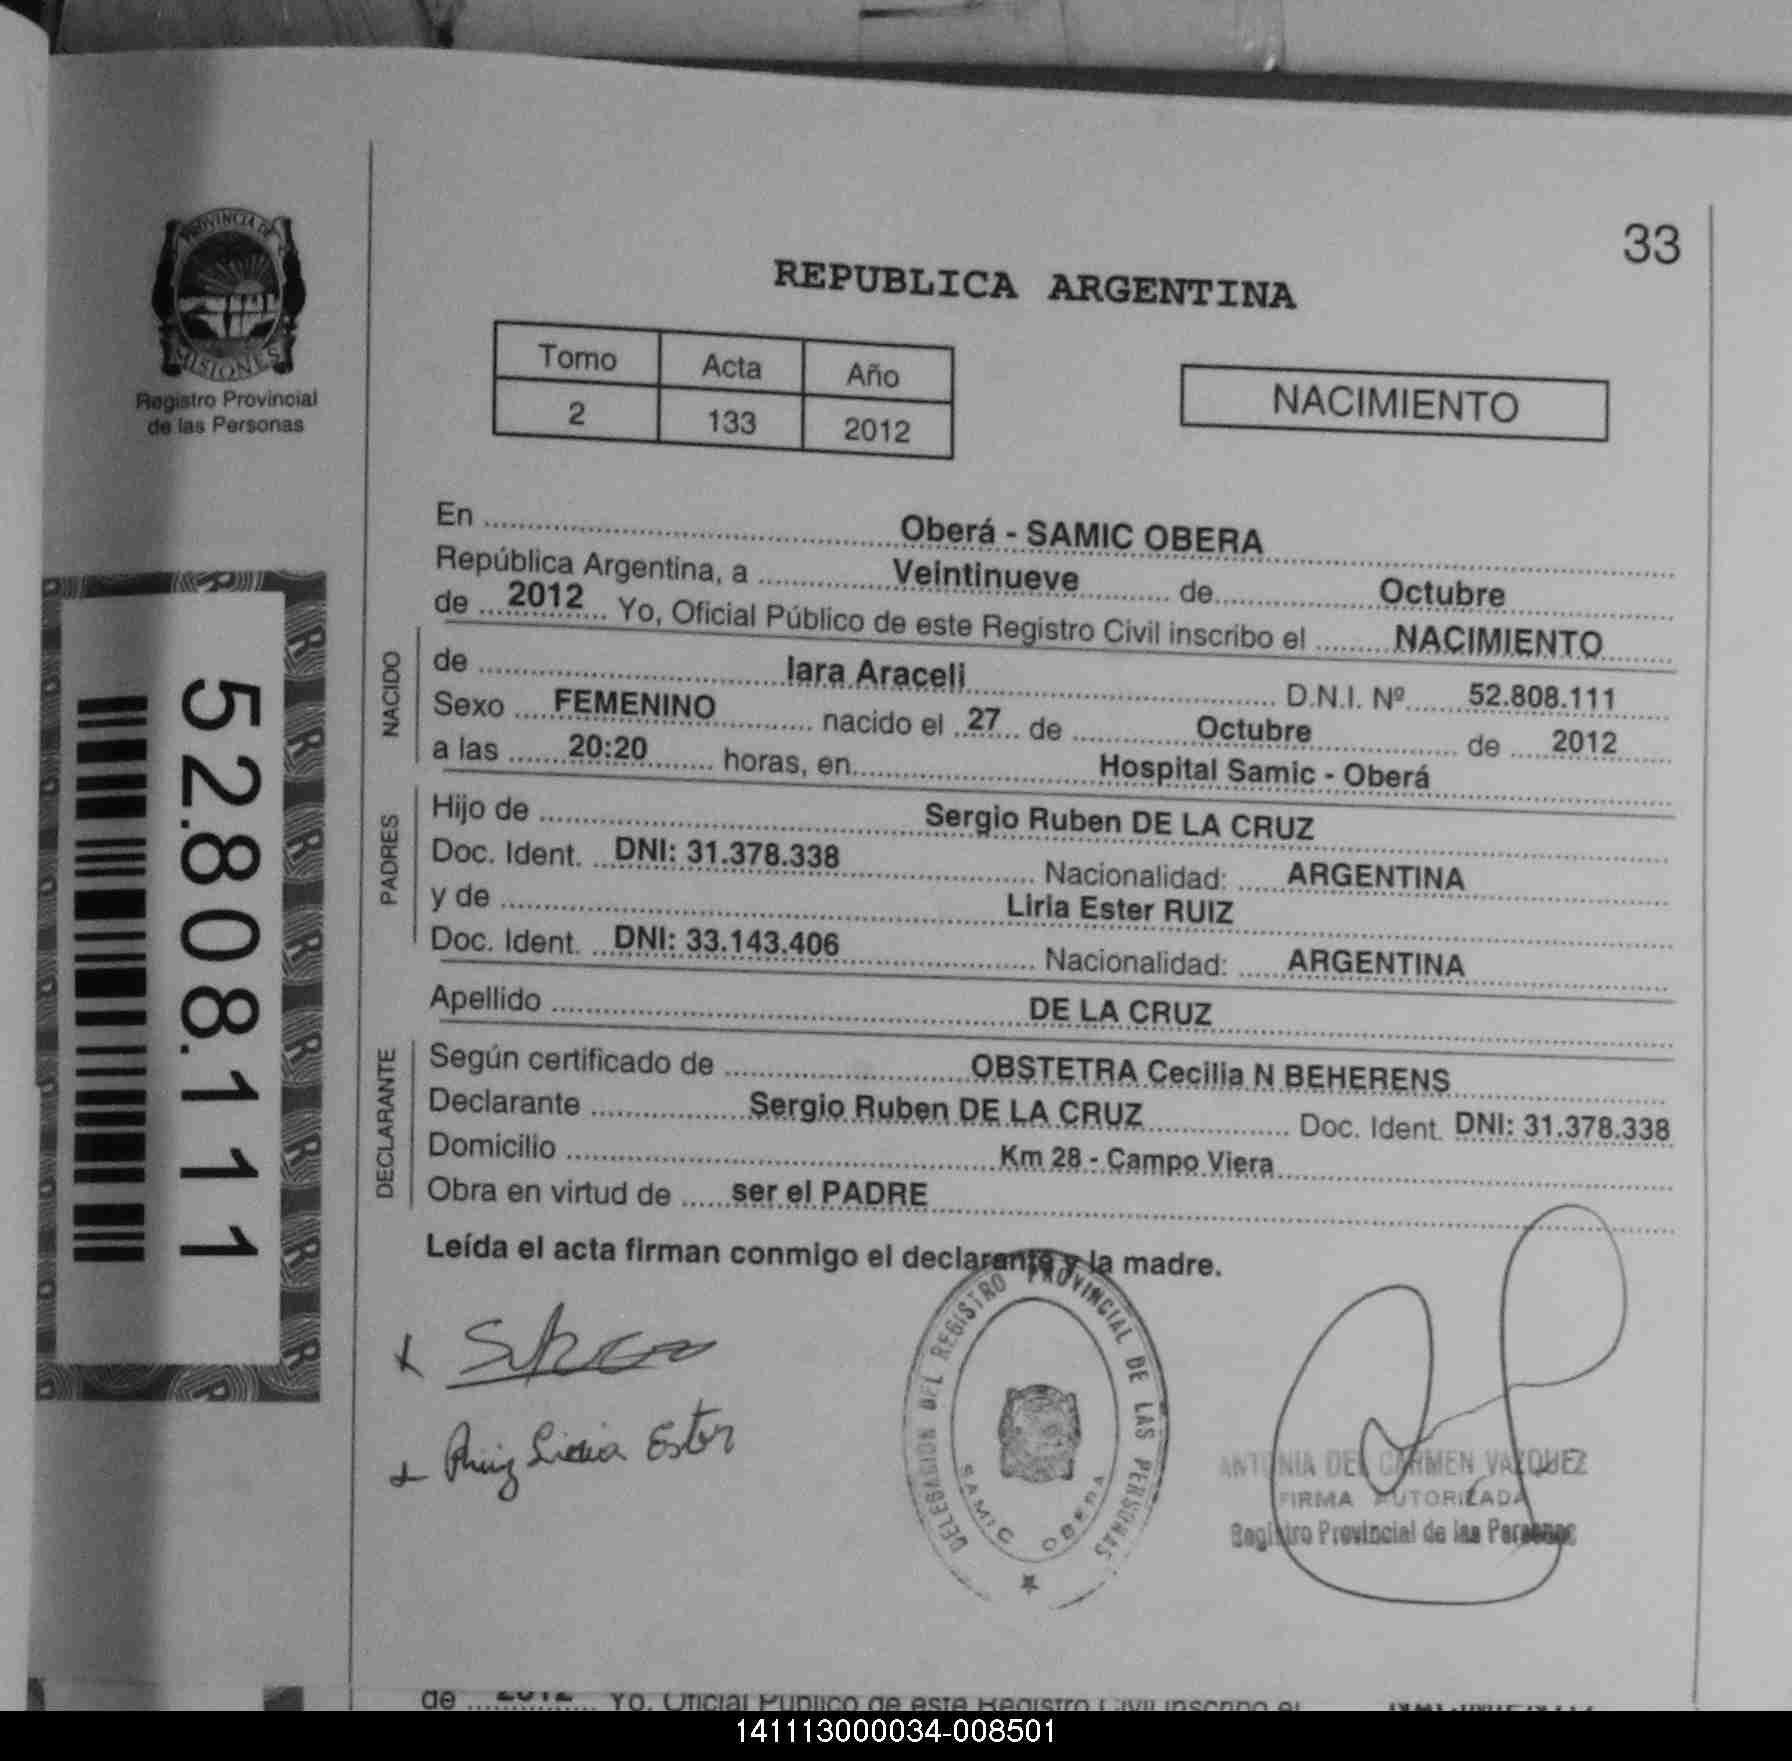 33
PROVINCIA DE
MISIONES
Registro Provincial
de las Personas
REPUBLICA ARGENTINA
Tomo Acta Año
2 133 2012
NACIMIENTO
En Oberá - SAMIC OBERA
República Argentina, a Veintinueve de Octubre
de 2012 Yo, Oficial Público de este Registro Civil inscribo el NACIMIENTO
NACIDO
de Iara Araceli D.N.I. Nº 52.808.111
Sexo FEMENINO nacido el 27 de Octubre de 2012
a las 20:20 horas, en Hospital Samic - Oberá
PADRES
Hijo de Sergio Ruben DE LA CRUZ
Doc. Ident. DNI: 31.378.338 Nacionalidad: ARGENTINA
y de Liria Ester RUIZ
Doc. Ident. DNI: 33.143.406 Nacionalidad: ARGENTINA
Apellido DE LA CRUZ
DECLARANTE
Según certificado de OBSTETRA Cecilia N BEHERENS
Declarante Sergio Ruben DE LA CRUZ Doc. Ident. DNI: 31.378.338
Domicilio Km 28 - Campo Viera
Obra en virtud de ser el PADRE
Leída el acta firman conmigo el declarante y la madre.
52.808.111
Ruiz Liria Ester
DELEGACION DEL REGISTRO PROVINCIAL DE LAS PERSONAS
SAMIC OBERA
ANTONIA DEL CARMEN VAZQUEZ
FIRMA AUTORIZADA
Registro Provincial de las Personas
de 2012 Yo, Oficial Público de este Registro Civil inscribo el
141113000034-008501